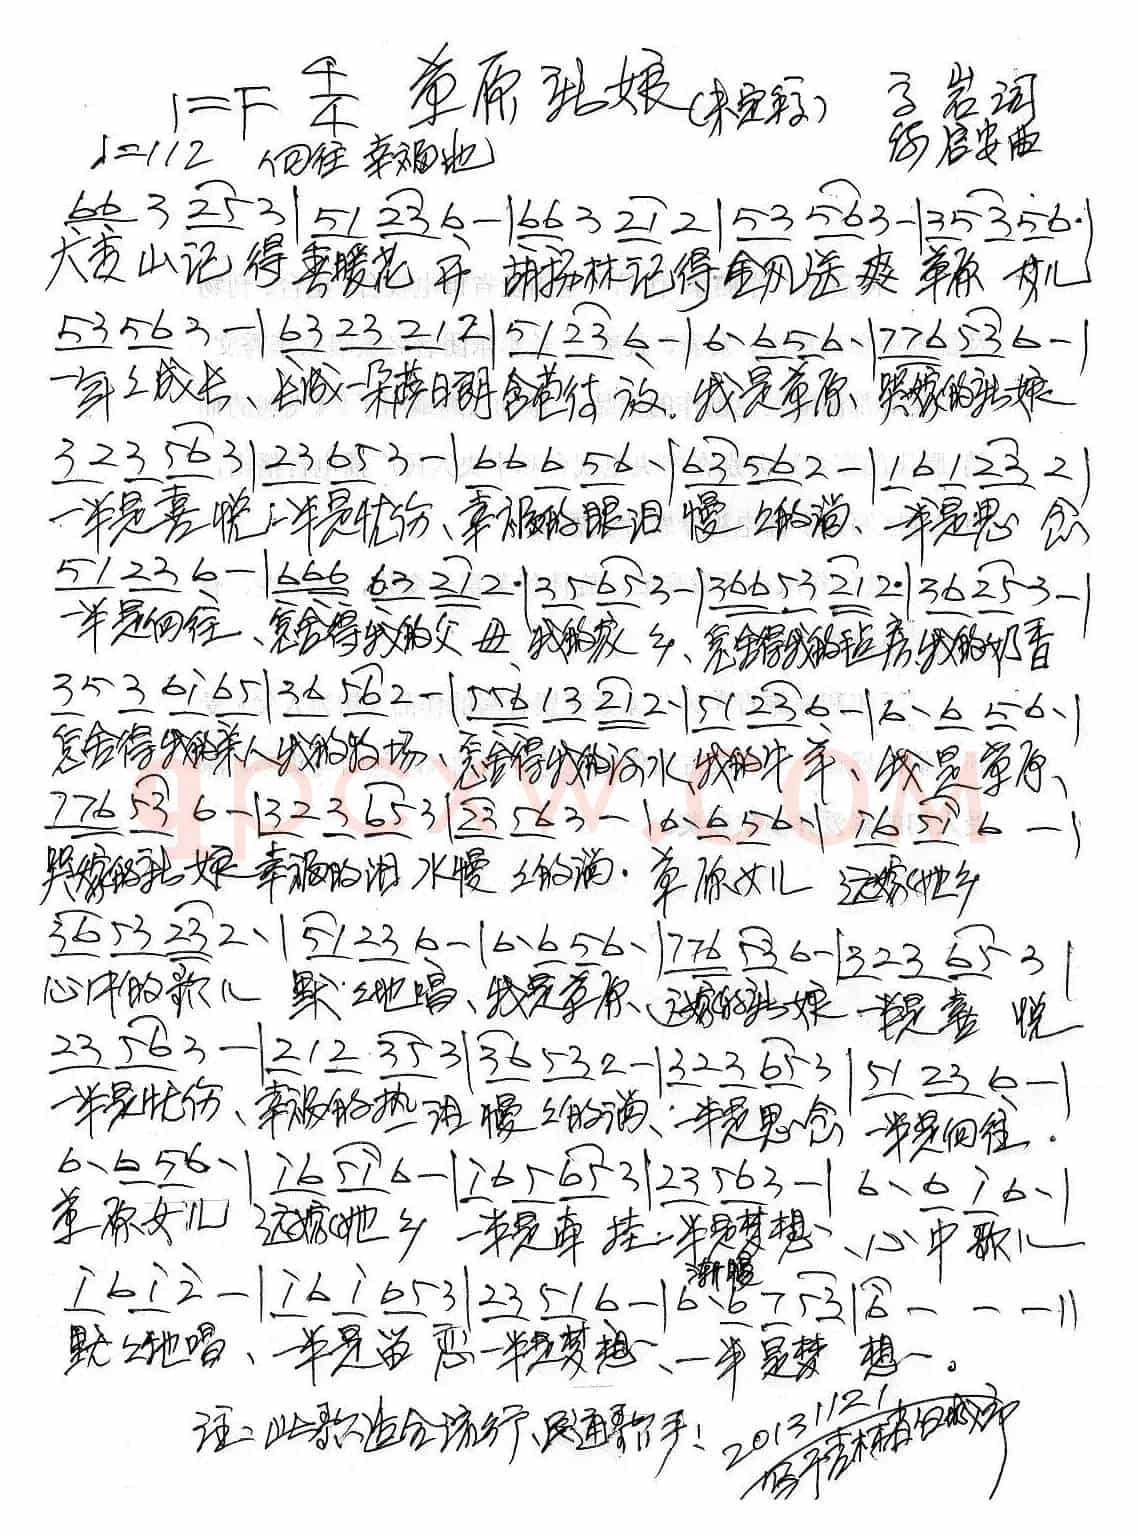 1=F 4/4 草原新娘(未定稿) 岩词
♩=112 (向往 幸福地) 启安曲
66 3 253 | 51 236 - | 663 212 | 53 563 - | 353 56· |
大青山记得春暖花开 胡杨林记得金风送爽 草原女儿
53563 - | 6323 212 | 51 236 - | 6· 656· | 776 536 - |
一年年成长、长成一朵萨日朗含苞待放. 我是草原、哭嫁的新娘
323 563 | 23653 - | 66656· | 63562 - | 161232 |
一半是喜悦一半是忧伤、幸福的眼泪慢慢的淌、一半是思念
51236 - | 666 63 212· | 35653 - | 36653 212· | 36253 - |
一半是向往、怎舍得我的父母 我的家乡、怎舍得我的毡房我的奶香
353 6i65 | 36562 - | 556 13 212· | 51236 - | 6· 656· |
怎舍得我的亲人我的牧场、怎舍得我的河水我的牛羊、我是草原、
776 53 6 - | 323653 | 23563 - | 6·656· | i65i6 - |
哭嫁的新娘 幸福的泪水慢慢的淌. 草原女儿 远嫁他乡
3653232· | 51236 - | 6·656· | 776 536 - | 323653 |
心中的歌儿 默默地唱、我是草原、远嫁的新娘 一半是喜悦
23563 - | 212353 | 36532 - | 323653 | 51236 - |
一半是忧伤、幸福的热泪慢慢的淌、一半是思念 一半是向往.
6·656· | i65i6 - | i65653 | 23563 - | 6·6i6· |
草原女儿 远嫁他乡 一半是牵挂一半是梦想、心中歌儿
渐慢
i6i2 - | i6i653 | 23516 - | 6·6753 | 6 - - - ||
默默地唱、一半是留恋一半是梦想、一半是梦想。
注:此歌适合流行、民通歌手!
20131121